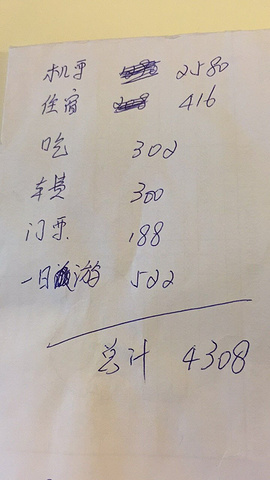 机票 2580
住宿 416
吃 302
车费 300
门票 188
一日游 522
总计 4308